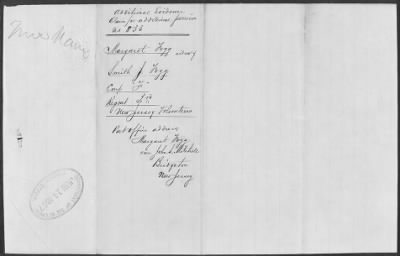 Additional Evidence
Claim for additional pension
Margaret Fogg widow of
Smith J. Fogg
Comp "F"
Regmt
New Jersey Volunteers
Post office address
Margaret Fogg
care John S. Mitchell
Bridgeton
New Jersey